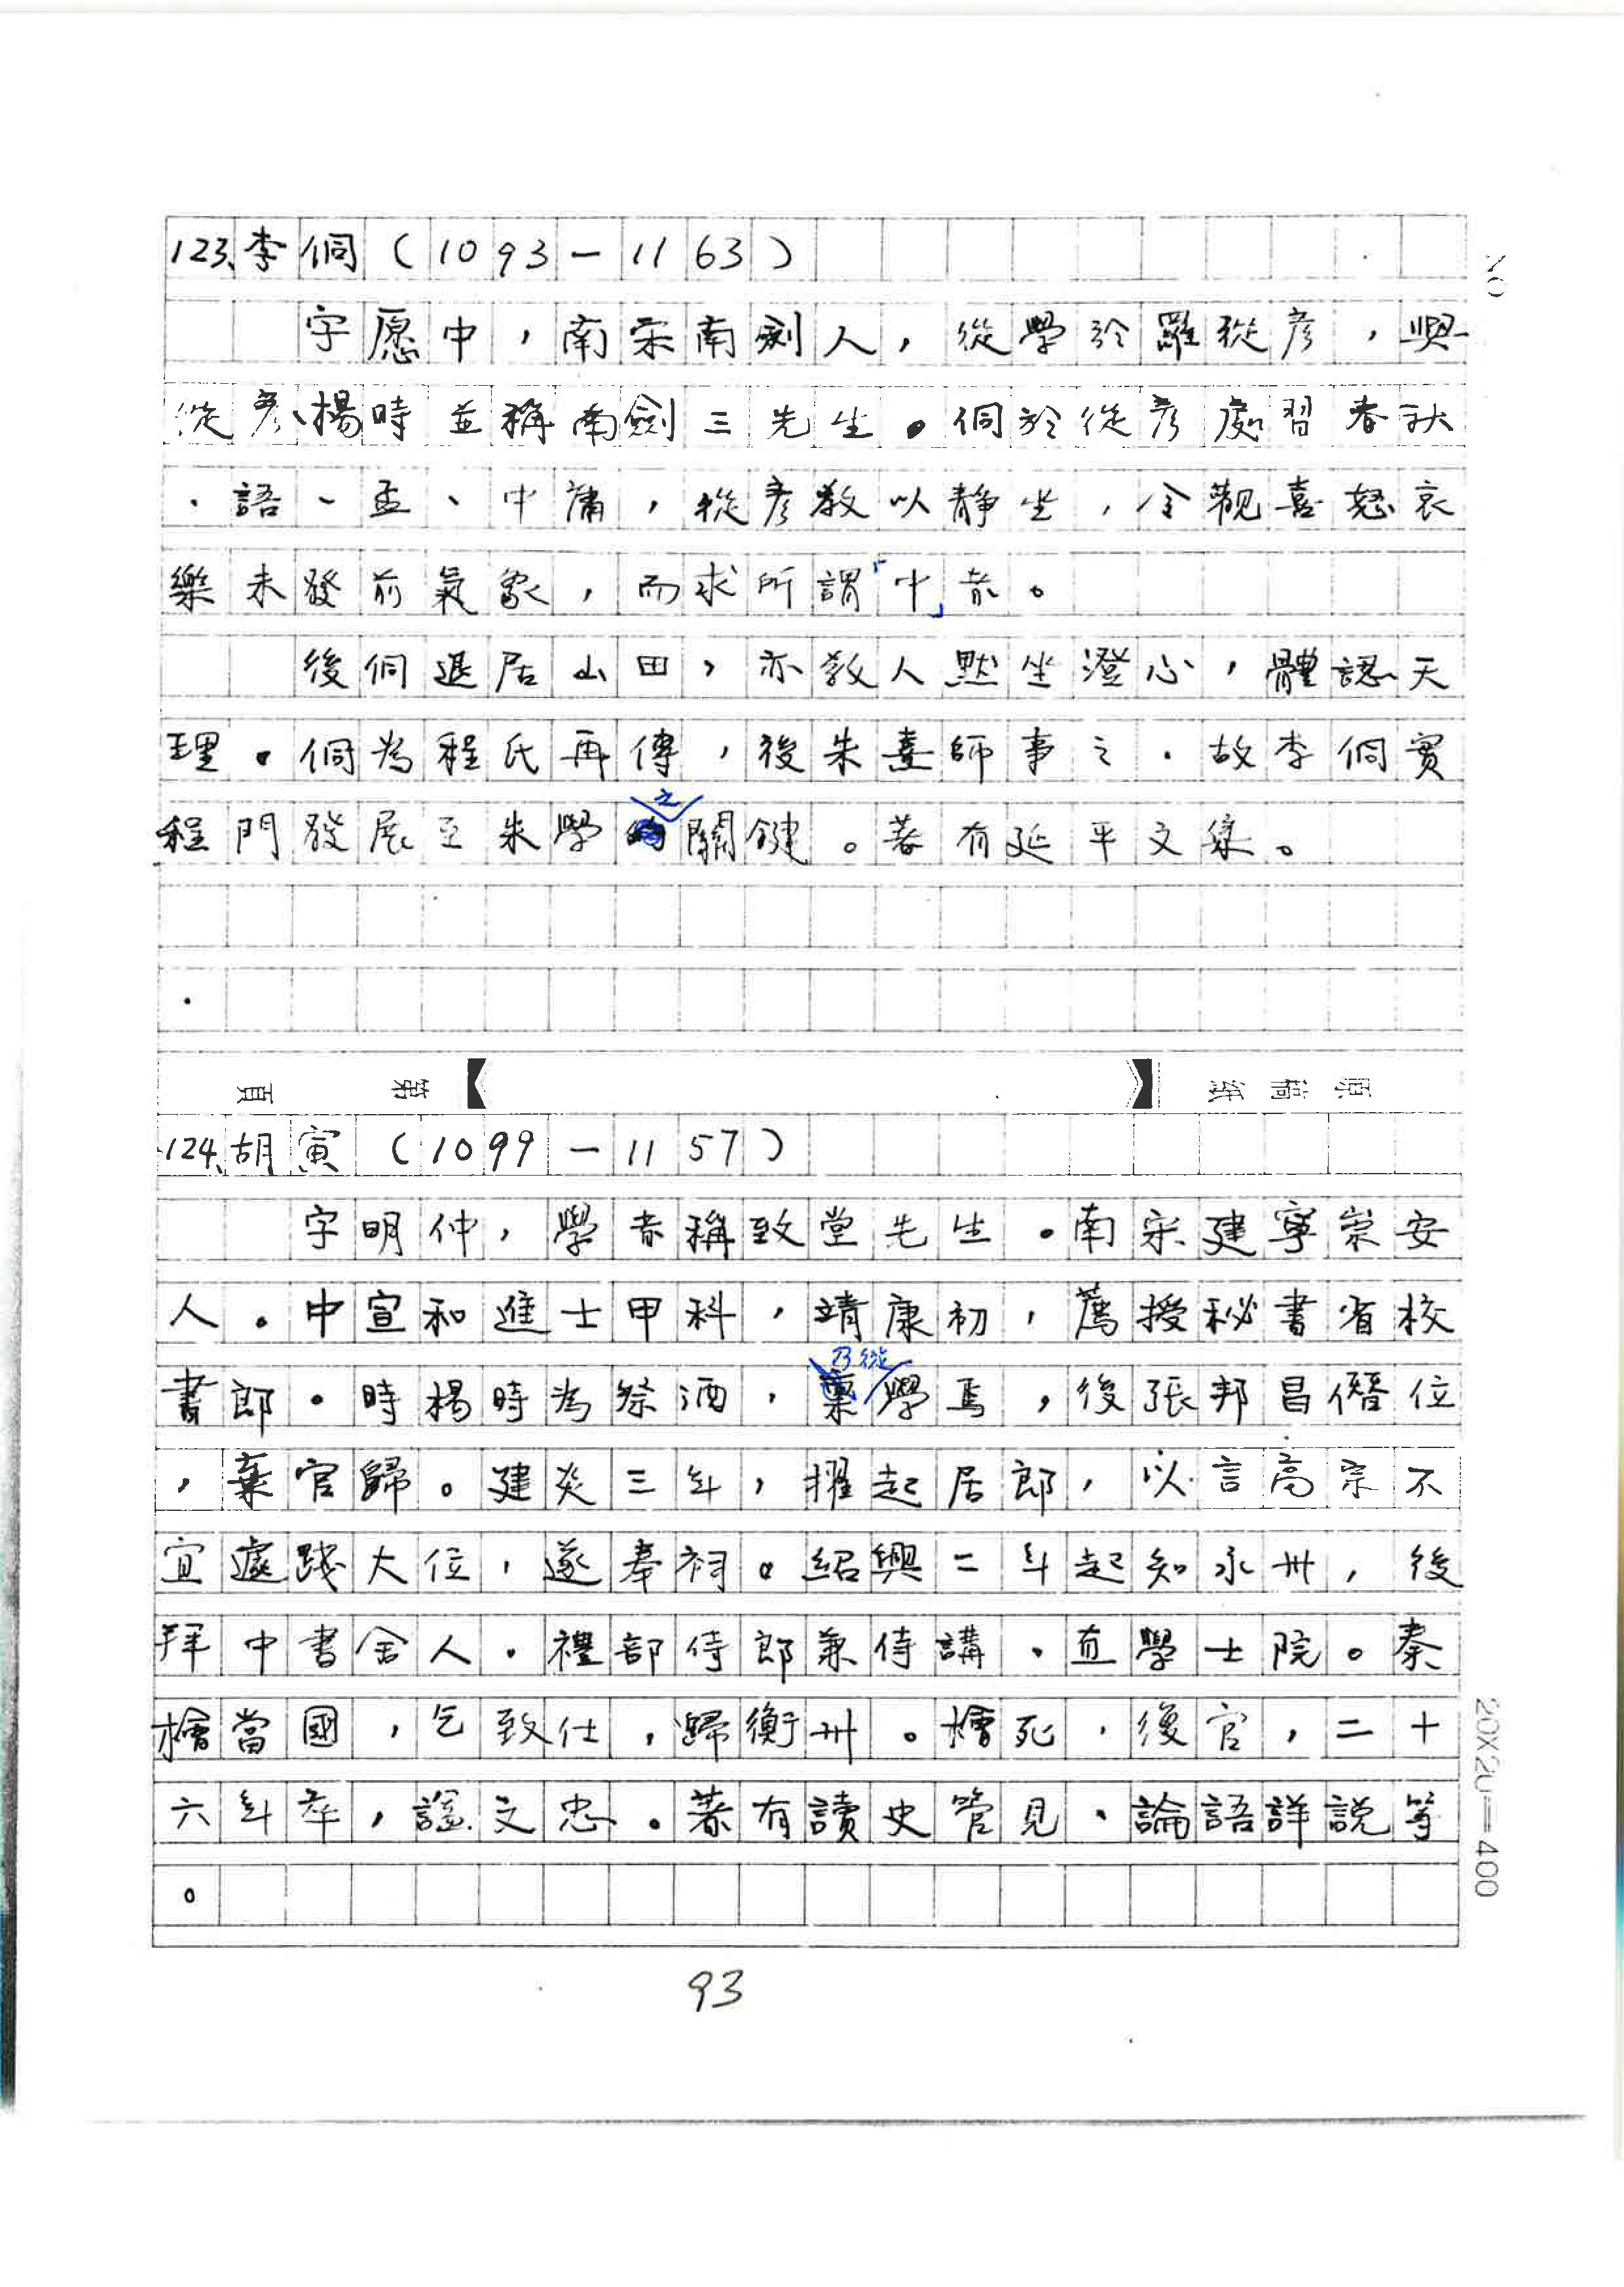 123、李侗(1093-1163)
字愿中,南宋南劍人,從學於羅從彥,與
從彥、楊時並稱南劍三先生。侗於從彥處習春秋
、語、孟、中庸,從彥教以靜坐,令觀喜怒哀
樂未發前氣象,而求所謂「中」者。
後侗退居山田,亦教人默坐澄心,體認天
理。侗為程氏再傳,後朱熹師事之。故李侗實
程門發展至朱學之關鍵。著有延平文集。
頁 第 【 】 紙 稿 原
124、胡寅(1099-1157)
字明仲,學者稱致堂先生。南宋建寧崇安
人。中宣和進士甲科,靖康初,薦授秘書省校
書郎。時楊時為祭酒,乃從學焉,後張邦昌僭位
,棄官歸。建炎三年,擢起居郎,以言高宗不
宜遽踐大位,遂奉祠。紹興二年起知永州,後
拜中書舍人。禮部侍郎兼侍講、直學士院。秦
檜當國,乞致仕,歸衡州。檜死,復官,二十
六年卒,諡文忠。著有讀史管見、論語詳說等
。
93
NO
20X20=400